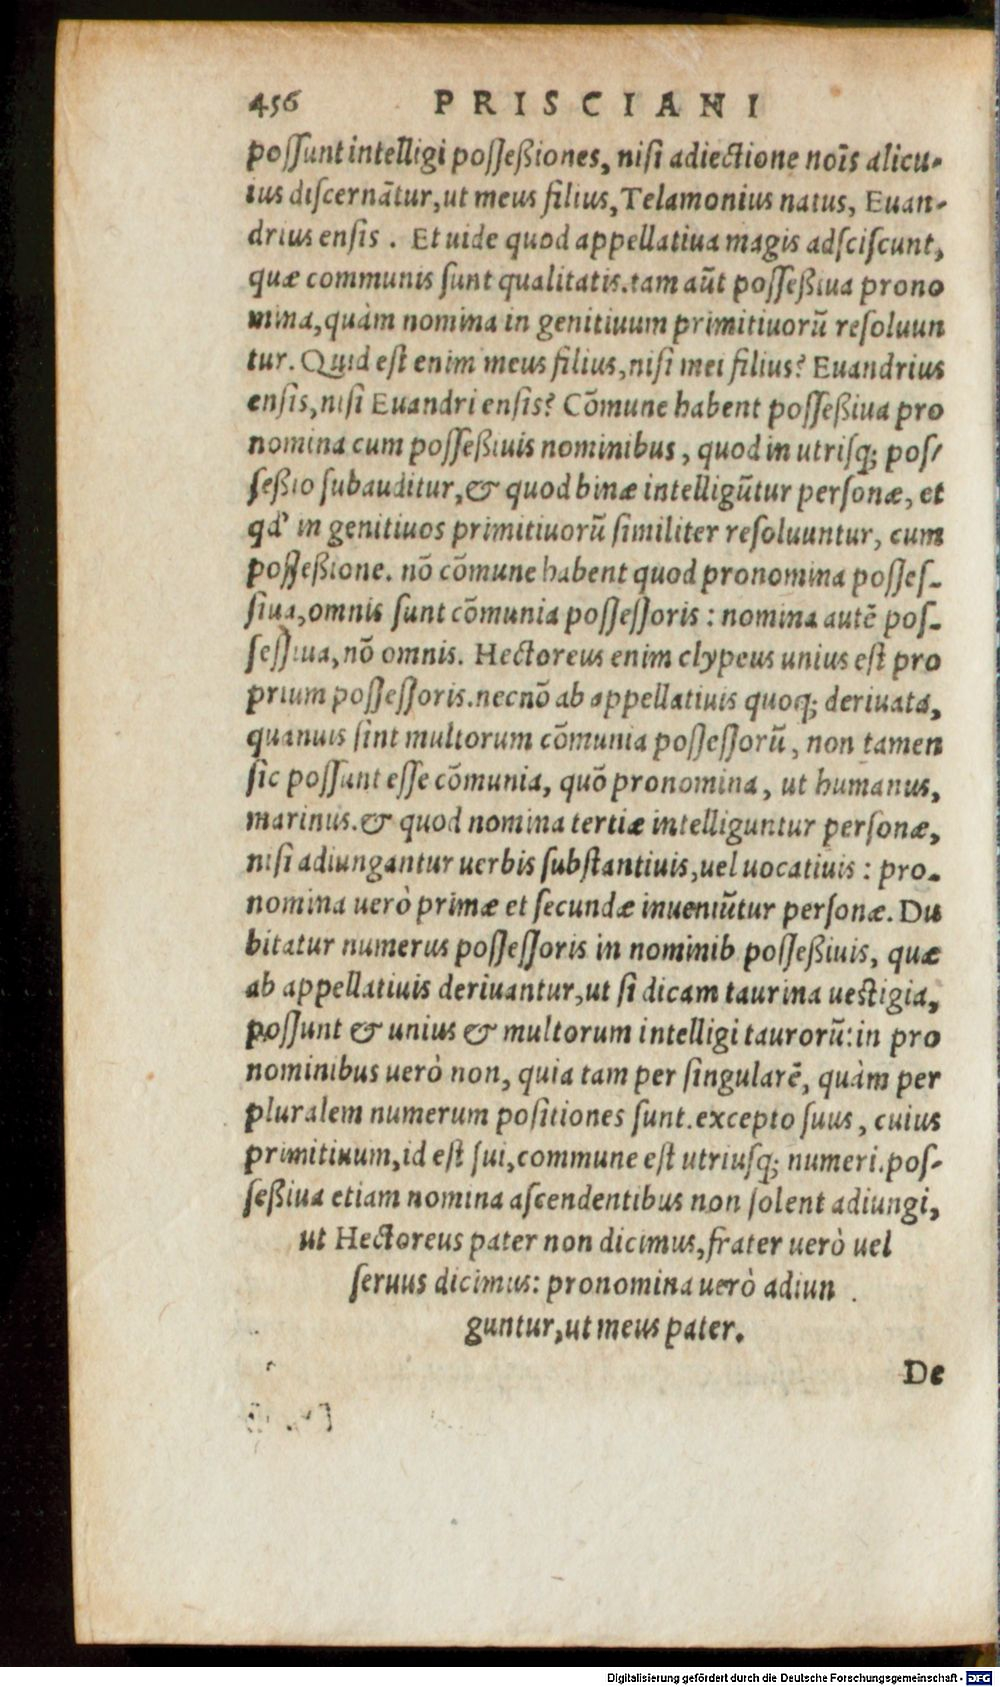 456 PRISCIANI
poſſunt intelligi poſſeßiones, niſi adiectione noīs alicu-
ius diſcernātur, ut meus filius, Telamonius natus, Euan-
drius enſis. Et uide quod appellatiua magis adſciſcunt,
quæ communis ſunt qualitatis. tam aūt poſſeßiua prono
mina, quàm nomina in genitiuum primitiuorū reſoluun
tur. Quid eſt enim meus filius, niſi mei filius? Euandrius
enſis, niſi Euandri enſis? Cōmune habent poſſeßiua pro
nomina cum poſſeßiuis nominibus, quod in utriſq; poſ-
ſeßio ſubauditur, & quod binæ intelligūtur perſonæ, et
qd' in genitiuos primitiuorū ſimiliter reſoluuntur, cum
poſſeßione. nō cōmune habent quod pronomina poſſeſ-
ſiua, omnis ſunt cōmunia poſſeſſoris: nomina autē poſ-
ſeſſiua, nō omnis. Hectoreus enim clypeus unius eſt pro
prium poſſeſſoris. necnō ab appellatiuis quoq; deriuata,
quanuis ſint multorum cōmunia poſſeſſorū, non tamen
ſic poſſunt eſſe cōmunia, quō pronomina, ut humanus,
marinus. & quod nomina tertiæ intelliguntur perſonæ,
niſi adiungantur uerbis ſubſtantiuis, uel uocatiuis: pro-
nomina uerò primæ et ſecundæ inueniūtur perſonæ. Du
bitatur numerus poſſeſſoris in nominib poſſeßiuis, quæ
ab appellatiuis deriuantur, ut ſi dicam taurina ueſtigia,
poſſunt & unius & multorum intelligi taurorū: in pro
nominibus uerò non, quia tam per ſingularē, quàm per
pluralem numerum poſitiones ſunt. excepto ſuus, cuius
primitiuum, id eſt ſui, commune eſt utriuſq; numeri. poſ-
ſeßiua etiam nomina aſcendentibus non ſolent adiungi,
ut Hectoreus pater non dicimus, frater uerò uel
ſeruus dicimus: pronomina uerò adiun
guntur, ut meus pater.
De
Digitalisierung gefördert durch die Deutsche Forschungsgemeinschaft - DFG